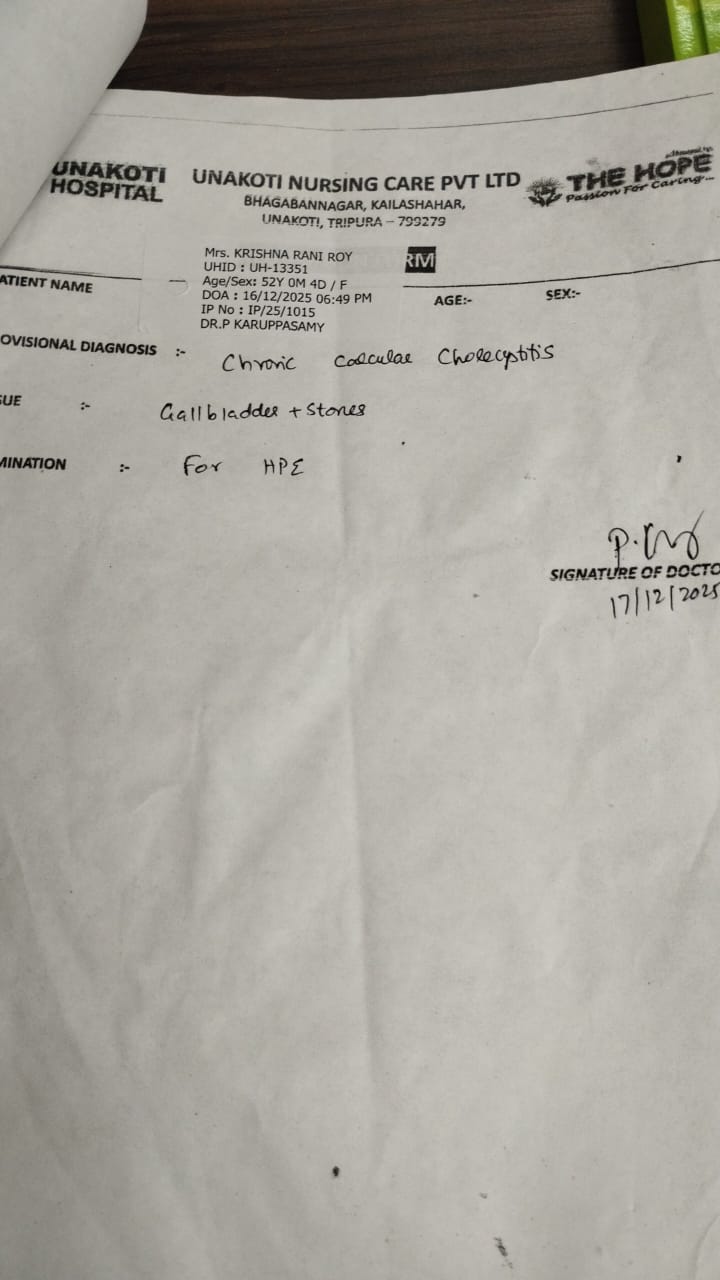 UNAKOTI HOSPITAL
UNAKOTI NURSING CARE PVT LTD
BHAGABANNAGAR, KAILASHAHAR,
UNAKOTI, TRIPURA – 799279
THE HOPE
Passion For Caring...
Mrs. KRISHNA RANI ROY
UHID : UH-13351
RM
ATIENT NAME
Age/Sex: 52Y 0M 4D / F
DOA : 16/12/2025 06:49 PM
AGE:-
SEX:-
IP No : IP/25/1015
DR.P KARUPPASAMY
OVISIONAL DIAGNOSIS :- Chronic Calculae Cholecystitis
SUE :- Gallbladder + Stones
MINATION :- For HPE
SIGNATURE OF DOCTO
17/12/2025